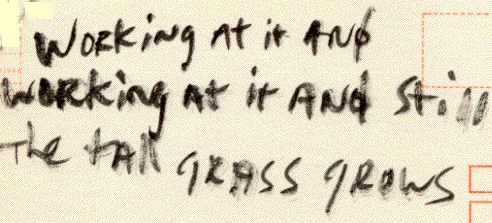 Working at it and
Working at it and still
The tall grass grows